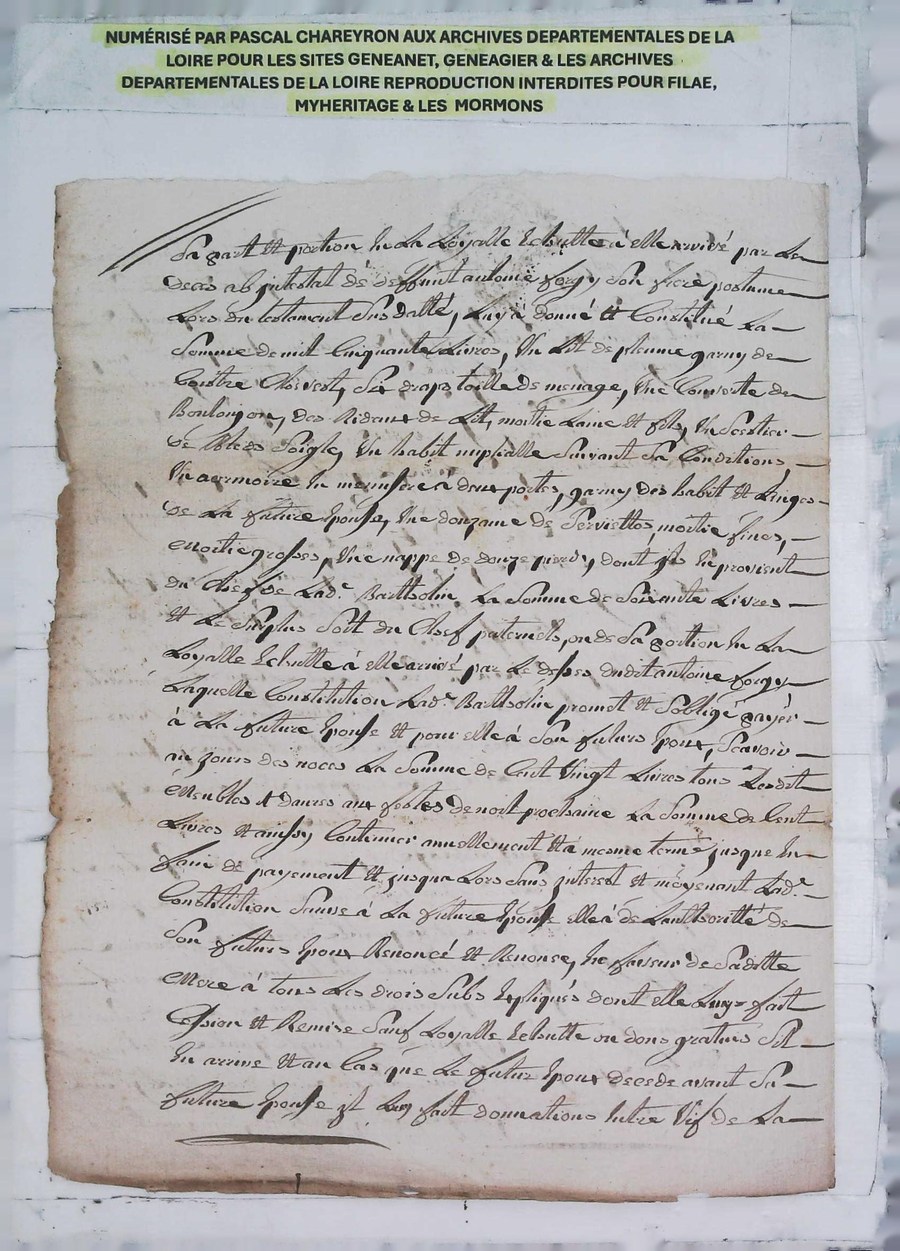 NUMÉRISÉ PAR PASCAL CHAREYRON AUX ARCHIVES DEPARTEMENTALES DE LA
LOIRE POUR LES SITES GENEANET, GENEAGIER & LES ARCHIVES
DEPARTEMENTALES DE LA LOIRE REPRODUCTION INTERDITES POUR FILAE,
MYHERITAGE & LES MORMONS
Sa part Et portion En La Loyalle Echutte à elle arrivé par Le
deces ab jntestat dé deffunt antoine forgy Son frere postume
Lors du testament Sus datté, Luy à donné Et Constitué La
Somme de mil Cinquante Livres, Un Lit de plume garny de
Coittre Chevest, Six draps toille de menage, Une Couverte de
des Rideaux de Lit, moitie Laine Et fils, Un Sestier
de Bleds Soigle, Un habit nupsialle Suivant Sa Conditions
Un armoire En menusere à deux portes, garny des habit Et Linges
de La future Epouse, Une douzaine de Serviettes, moitie fines,
moitie grosses, Une nappe de douze pieds, dont jls En provient
du Chef de Lad.e Bartholin La Somme de Soixante Livres
Et Le Surplus Soit du Chef paternels, ou de Sa portion En La
Loyalle Echutte à elle arrivé par Le desses dudit antoine forgy
Laquelle Constitution Lad.e Barthelin promet Et Soblige payér
à La future Epouse Et pour elle à Son futurs Epoux, Scavoir
au jours des noces La Somme de Cent Vingt Livres tous Lesdit
Meubles Et danres aux festes de noit prochaine La Somme de Cent
Livres Et ainssy Continuer annuellement Et à mesme terme jusque En
fain de payement Et jusqua Lors Sans jnterest Et moyenant Lad.e
Constitution Sauve à La future Epouse elle à de Lauthoritté de
Son futurs Epoux Renoncé Et Renonse, En faveur de Sa ditte
Mere à tous Les drois Subs Expliqués dont elle Luy fait
Cession Et Remise Sauf Loyalle Echutte ou dons gratuits Sil
En arrive Et au Cas que Le futur Epoux decede avant Sa
future Epouse jl Luy fait donnations Entre Vif de La